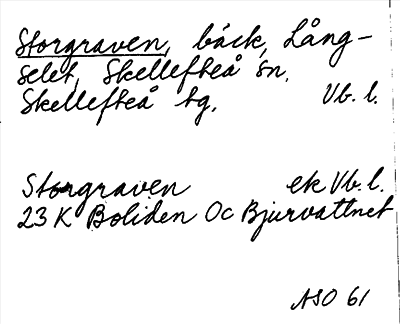 Storgraven, bäck, Lång-
selet, Skellefteå sn.
Skellefteå tg. Vb. l.
Storgraven ek Vb. l.
23 K Boliden 0c Bjurvattnet
ASO 61